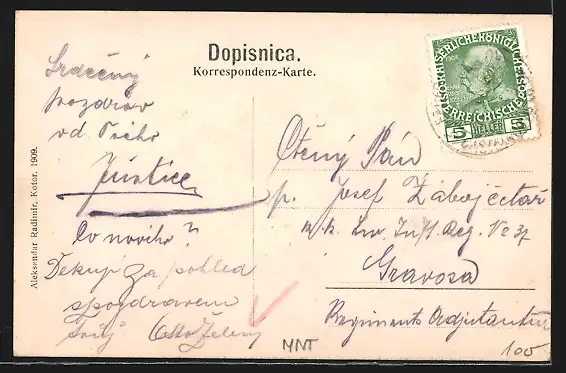 Dopisnica.
Korrespondenz-Karte.
Srdečný
pozdrav
od
Justice
Co nového?
Děkuji za pohled
s pozdravem
Otto Zelený
Aleksandar Radimir, Kotor. 1909.
KAISERLICHE KÖNIGLICHE
ÖSTERREICHISCHE
5 HELLER 5
Ctěný Pán
p. Josef Zábojectař
k.k. Inft. Reg. No 37
Gravosa
Regiments Adjutantur
MNT
100